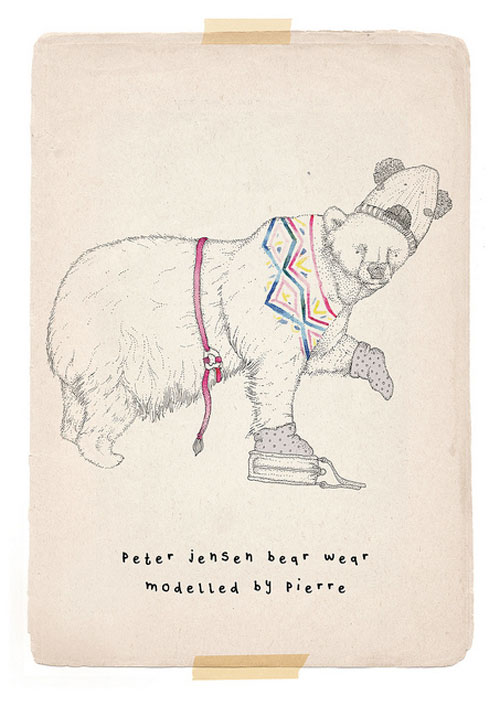 Peter jensen bear wear
modelled by Pierre